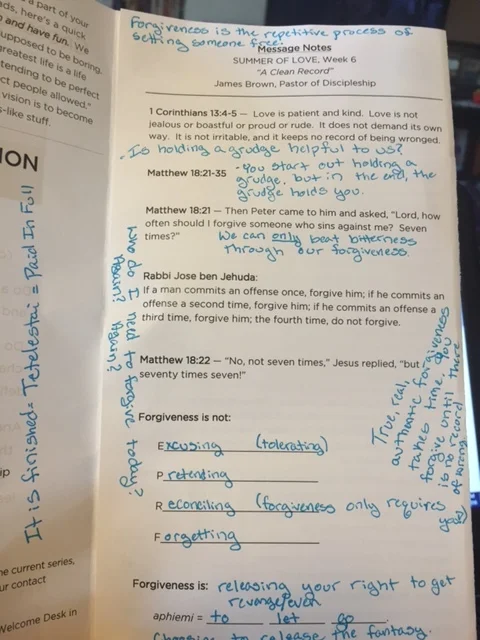 a part of your
ads, here's a quick
and have fun. We
upposed to be boring.
greatest life is a life
tending to be perfect
ct people allowed."
vision is to become
s-like stuff.
ION
It is finished = Tetelestai = Paid In Full
ip
he current series,
ur contact
Welcome Desk in
Forgiveness is the repetitive process of
setting someone free!
Message Notes
SUMMER OF LOVE, Week 6
"A Clean Record"
James Brown, Pastor of Discipleship
1 Corinthians 13:4-5 — Love is patient and kind. Love is not
jealous or boastful or proud or rude. It does not demand its own
way. It is not irritable, and it keeps no record of being wronged.
• Is holding a grudge helpful to us?
Matthew 18:21-35
• You start out holding a
grudge, but in the end, the
grudge holds you.
Matthew 18:21 — Then Peter came to him and asked, "Lord, how
often should I forgive someone who sins against me? Seven
times?"
We can only beat bitterness
through our forgiveness.
Who do I need to forgive today?
Again?
Again?
Rabbi Jose ben Jehuda:
If a man commits an offense once, forgive him; if he commits an
offense a second time, forgive him; if he commits an offense a
third time, forgive him; the fourth time, do not forgive.
Matthew 18:22 — "No, not seven times," Jesus replied, "but
seventy times seven!"
True, real,
authentic forgiveness
takes time. You
forgive until there
is no record
of wrong.
Forgiveness is not:
Excusing (tolerating)
Pretending
Reconciling (forgiveness only requires
you)
Forgetting
Forgiveness is: releasing your right to get
revenge/even
aphiemi = to let go
Choosing to release the fantasy